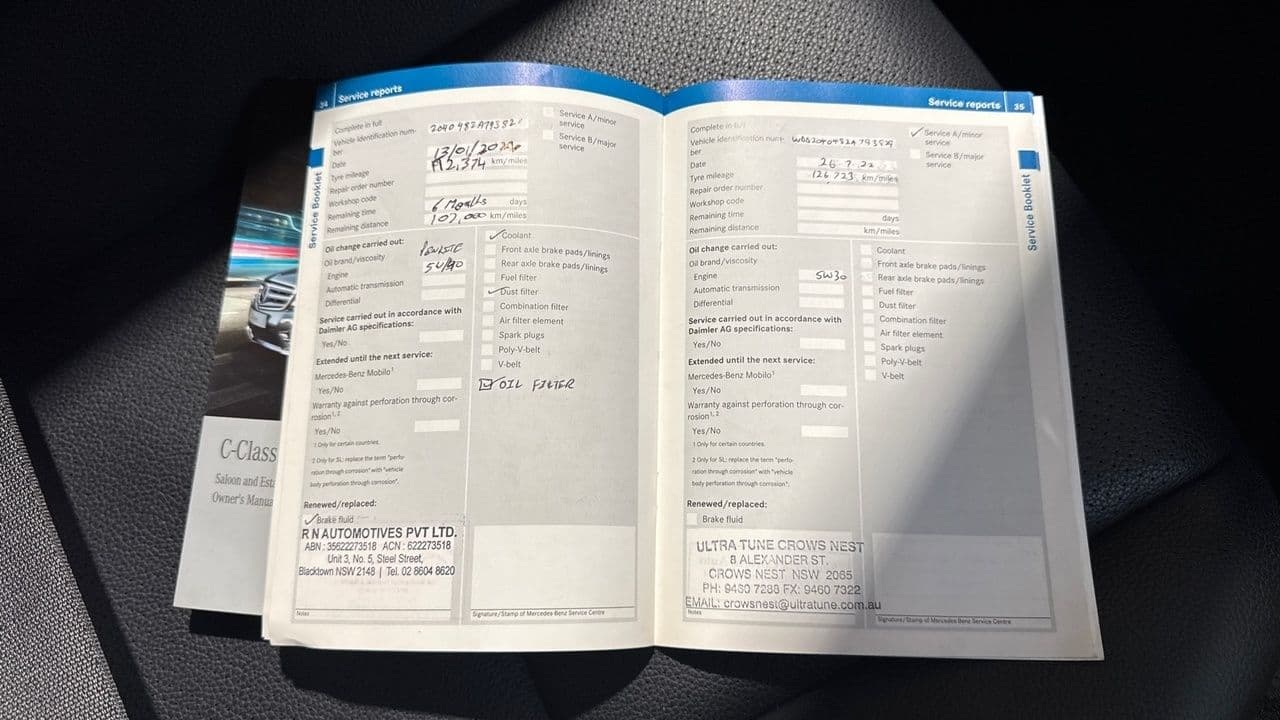 34 Service reports
Complete in full
Vehicle identification num-
ber
Date 13/01/20
Tyre mileage km/miles
Repair order number
Workshop code
Remaining time 6 Months days
Remaining distance 107,000 km/miles
Service A/minor
service
Service B/major
service
Oil change carried out:
Oil brand/viscosity
Engine
Automatic transmission
Differential
Service carried out in accordance with
Daimler AG specifications:
Yes/No
Extended until the next service:
Mercedes-Benz Mobilo¹
Yes/No
Warranty against perforation through cor-
rosion¹,²
Yes/No
1 Only for certain countries.
2 Only for SL: replace the term "perfo-
ration through corrosion" with "vehicle
body perforation through corrosion".
Renewed/replaced:
✓ Brake fluid
✓ Coolant
Front axle brake pads/linings
Rear axle brake pads/linings
Fuel filter
✓ Dust filter
Combination filter
Air filter element
Spark plugs
Poly-V-belt
V-belt
☑ OIL FILTER
R N AUTOMOTIVES PVT LTD.
ABN : 35622273518 ACN : 622273518
Unit 3, No. 5, Steel Street,
Blacktown NSW 2148 | Tel. 02 8604 8620
Notes
Signature/Stamp of Mercedes-Benz Service Centre
Service Booklet
Service reports 35
Complete in full
Vehicle identification num-
ber
Date 26.7.22
Tyre mileage 126,723 km/miles
Repair order number
Workshop code
Remaining time days
Remaining distance km/miles
✓ Service A/minor
service
Service B/major
service
Oil change carried out:
Oil brand/viscosity
Engine 5W30
Automatic transmission
Differential
Service carried out in accordance with
Daimler AG specifications:
Yes/No
Extended until the next service:
Mercedes-Benz Mobilo¹
Yes/No
Warranty against perforation through cor-
rosion¹,²
Yes/No
1 Only for certain countries.
2 Only for SL: replace the term "perfo-
ration through corrosion" with "vehicle
body perforation through corrosion".
Renewed/replaced:
Brake fluid
Coolant
Front axle brake pads/linings
Rear axle brake pads/linings
Fuel filter
Dust filter
Combination filter
Air filter element
Spark plugs
Poly-V-belt
V-belt
ULTRA TUNE CROWS NEST
8 ALEXANDER ST.
CROWS NEST NSW 2065
PH: 9460 7288 FX: 9460 7322
EMAIL: crowsnest@ultratune.com.au
Notes
Signature/Stamp of Mercedes-Benz Service Centre
Service Booklet
C-Class
Saloon and Esta
Owner's Manua